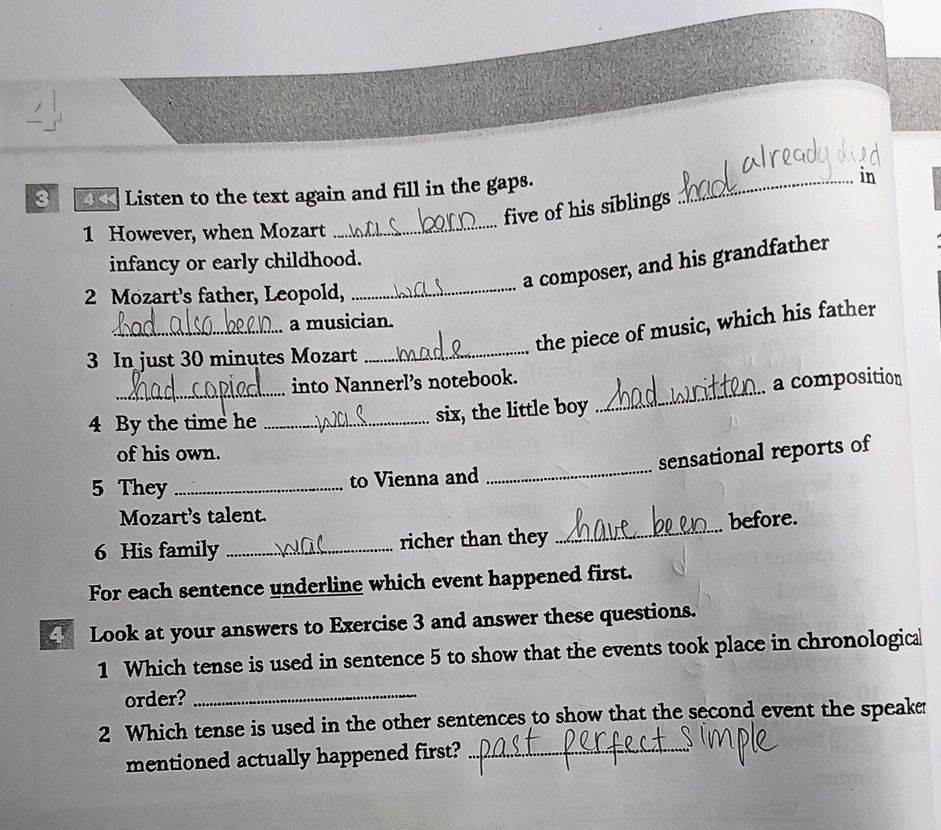 4
3 4 Listen to the text again and fill in the gaps.
1 However, when Mozart was born five of his siblings had already died in
infancy or early childhood.
2 Mozart's father, Leopold, was a composer, and his grandfather
had also been a musician.
3 In just 30 minutes Mozart made the piece of music, which his father
had copied into Nannerl's notebook.
4 By the time he was six, the little boy had written a composition
of his own.
5 They ........ to Vienna and ........ sensational reports of
Mozart's talent.
6 His family was richer than they have been before.
For each sentence underline which event happened first.
4 Look at your answers to Exercise 3 and answer these questions.
1 Which tense is used in sentence 5 to show that the events took place in chronological
order? ........
2 Which tense is used in the other sentences to show that the second event the speaker
mentioned actually happened first? past perfect simple